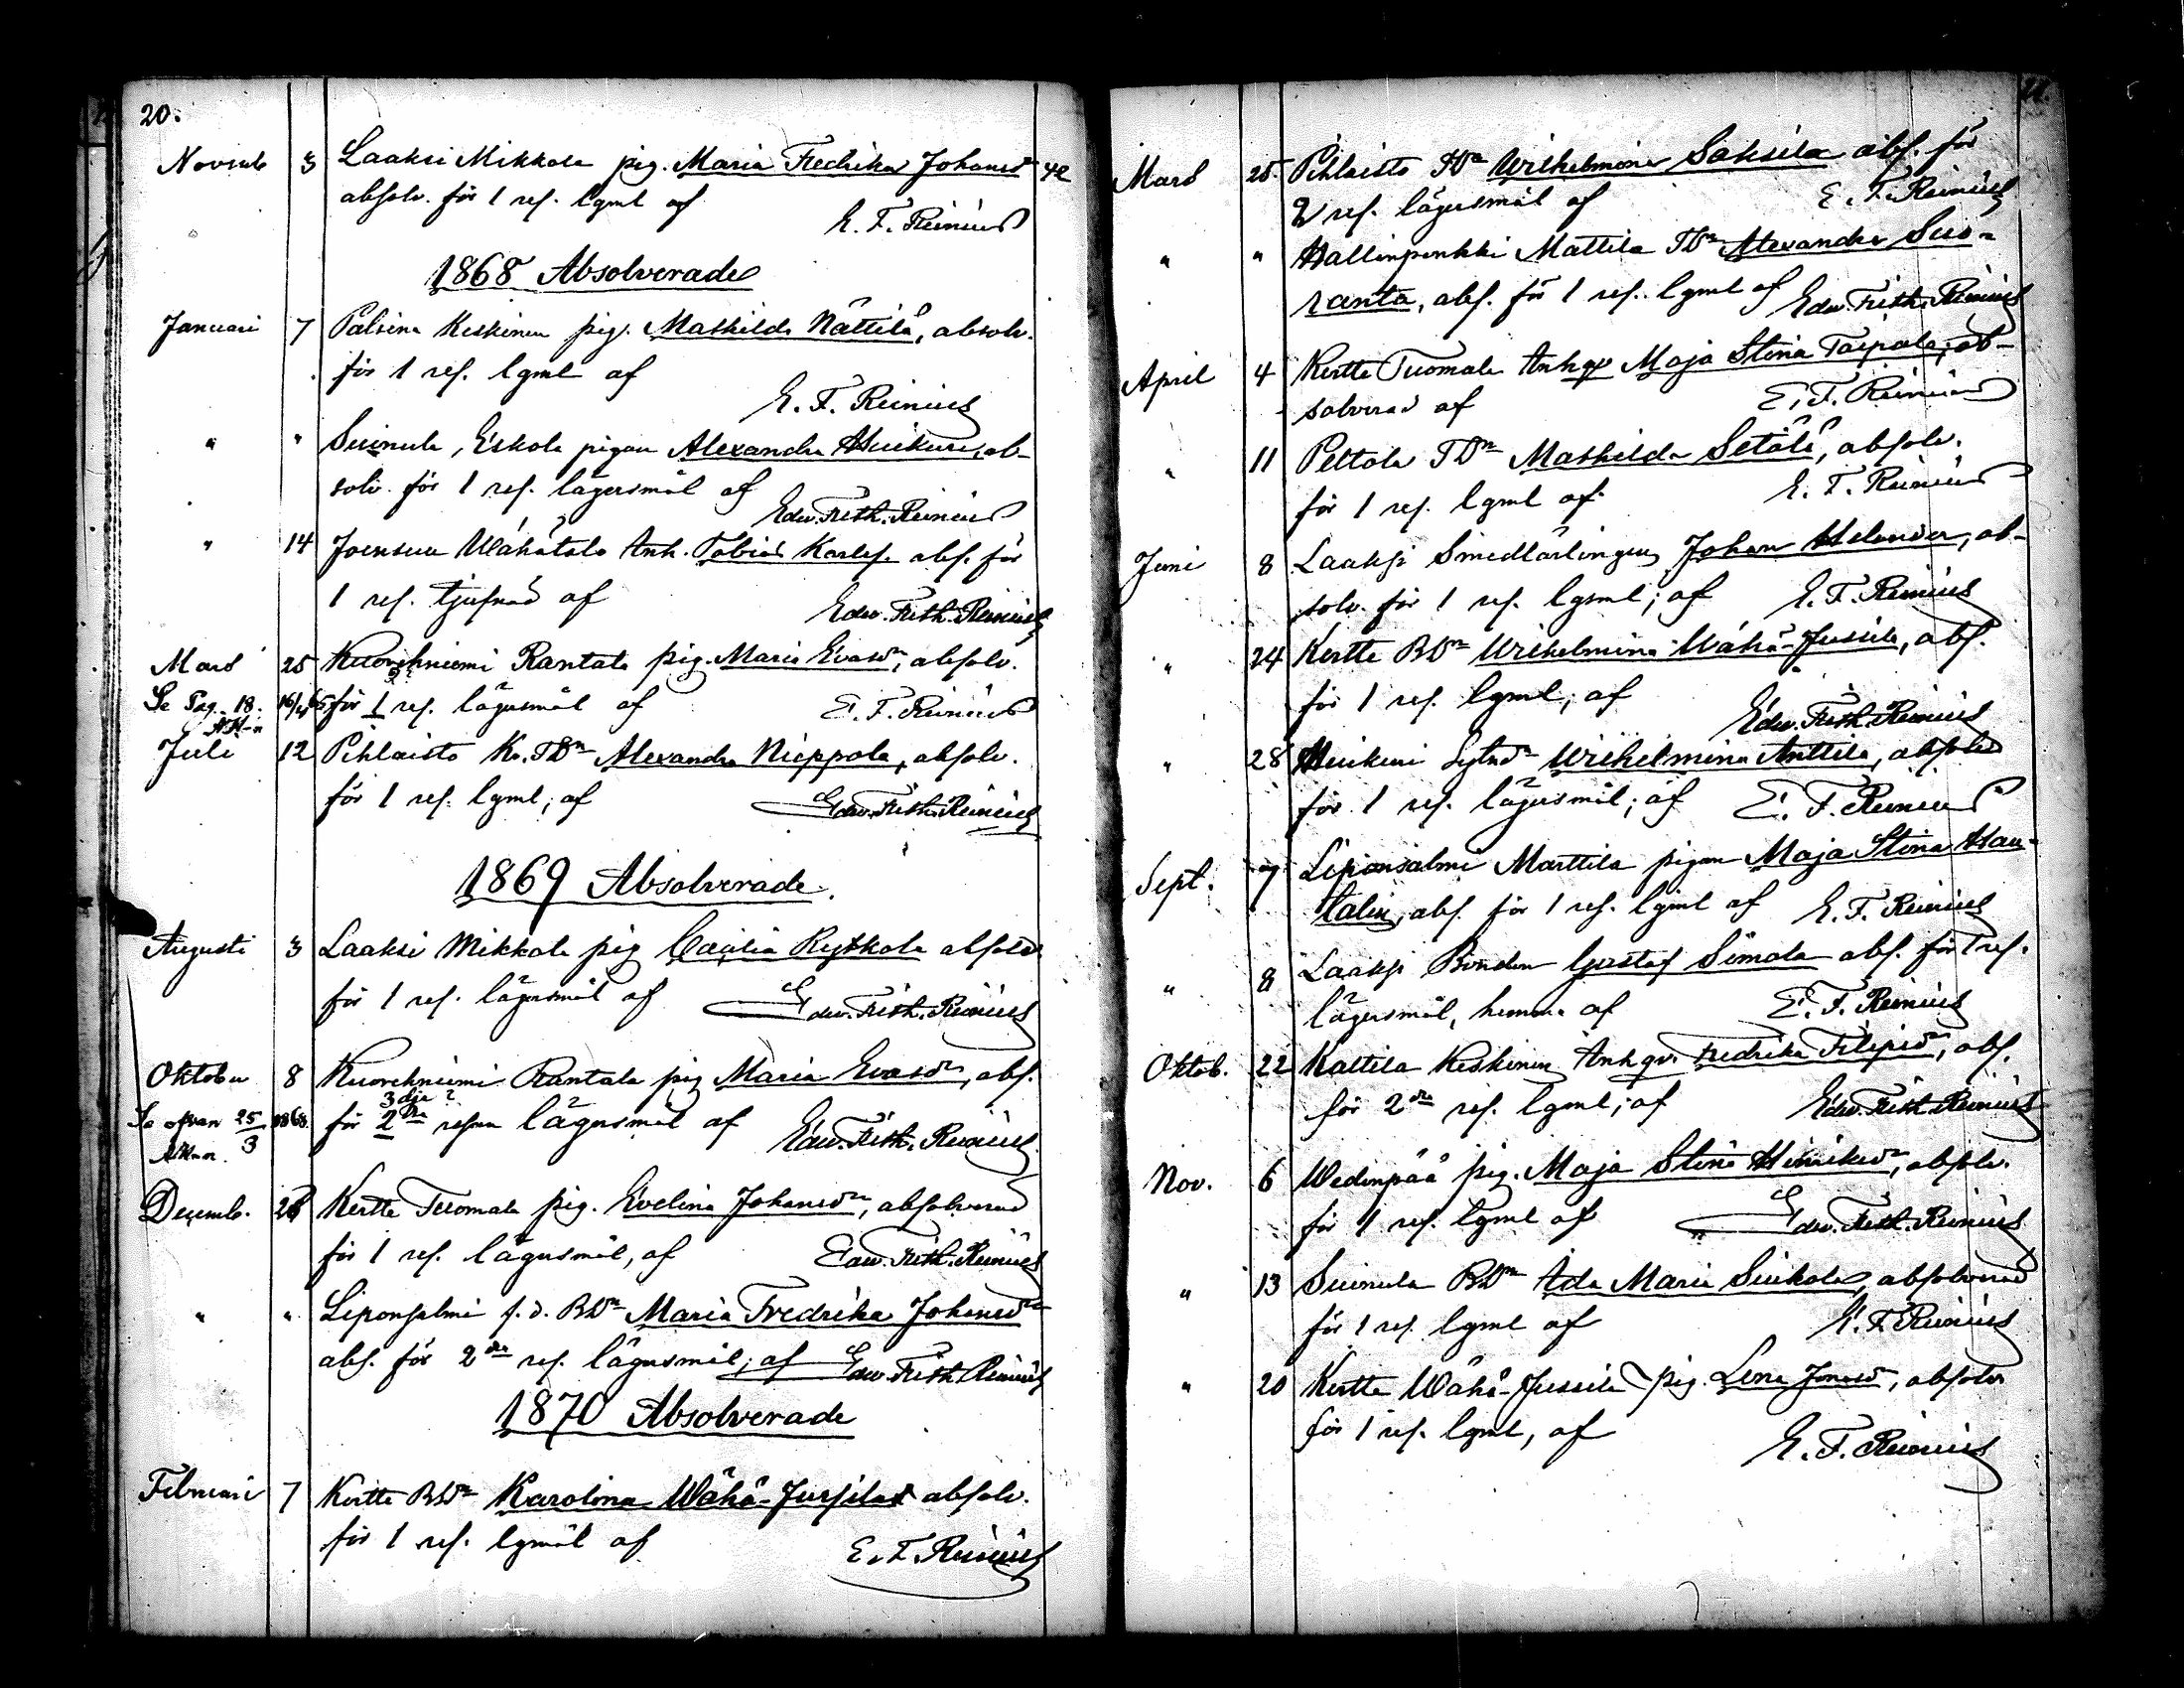 20.
Novemb 3 Laaksi Mikkola pig. Maria Fredrika Johansdr 42
absolv. för 1 res. lgml af
E. F. Reinius
1868 Absolverade
Januari 7 Palsina Keskinen pig. Mathilda Nättilä, absolv.
för 1 res. lgml af
E. F. Reinius
" " Suinula, Eskola pigan Alexandra Huikuri, ab-
solv. för 1 res. lägersmål af
Edw. Frith. Reinius
" 14 Joensuu Wähätalo Inh. Tobias Karlss. abs. för
1 res. tjufnad af
Edw. Frith. Reinius
Mars 25 Kuorehniemi Rantala pig. Maria Evasdr, absolv.
Se Pag. 18. 16/4 65 för 1 res. lägersmål af E. F. Reinius
Juli 12 Pihlaisto Ko. TDr Alexandra Nieppola, absolv.
för 1 res. lgml; af Edw. Frith. Reinius
1869 Absolverade.
Augusti 3 Laaksi Mikkola pig Cecilia Rytkola absolv
för 1 res. lägersmål af Edw. Frith. Reinius
Oktober 8 Kuorehniemi Rantala pig Maria Evasdr, abs.
3dje ?
Se ofvan 25/3 1868. för 2dra resan lägersmål af Edw. Frith. Reinius
Decemb. 26 Kertte Tuomala pig. Evelina Johansdr, absolverad
för 1 res. lägersmål, af Edw. Frith. Reinius
" " Liponsalmi f. d. BDr Maria Fredrika Johansdr
abs. för 2dra res. lägersmål; af Edw. Frith Reinius
1870 Absolverade
Februari 7 Kertte BDr Karolina Wähä-Jussila absolv.
för 1 res. lgmål af
E. F. Reinius
21.
Mars 25. Pihlaisto TDr Wilhelmina Saksila abs. för
2 res. lägersmål af E. F. Reinius
" " Hallinpenkki Mattila TDr Alexandra Suo-
ranta, abs. för 1 res. lgml af Edw. Frith. Reinius
April 4 Kertte Tuomala Inhqv Maja Stina Taipale, ab-
solverad af E. F. Reinius
" 11 Peltola TDr Mathilda Setälä, absolv.
för 1 res. lgml af E. F. Reinius
Juni 8 Laaksi Smedlärlingen Johan Helander, ab-
solv. för 1 res. lgml; af E. F. Reinius
" 24 Kertte BDr Wilhelmina Wähä-Jussila, abs.
för 1 res. lgml; af
Edw. Frith. Reinius
" 28 Huikuri Wilhelmina Anttila, absolv
för 1 res. lägersmål; af E. F. Reinius
Sept. 7 Liponsalmi Marttila pigan Maja Stina Hau-
talin, abs. för 1 res. lgml af E. F. Reinius
" 8 Laaksi Bonden Gustaf Simola abs. för 1 res.
lägersmål, hemma af E. F. Reinius
Oktob. 22 Kaltila Keskinen Inhqv. Fredrika Filipsdr, abs.
för 2dra res. lgml; af Edw. Frith. Reinius
Nov. 6 Wedenpää pig. Maja Stina Henriksdr, absolv.
för 1 res. lgml af Edw. Frith. Reinius
" 13 Suinula BDr Ida Maria Siukola, absolverad
för 1 res. lgml af E. F. Reinius
" 20 Kertte Wähä-Jussila pig. Lena Jonasd, absolv
för 1 res. lgml, af
E. F. Reinius